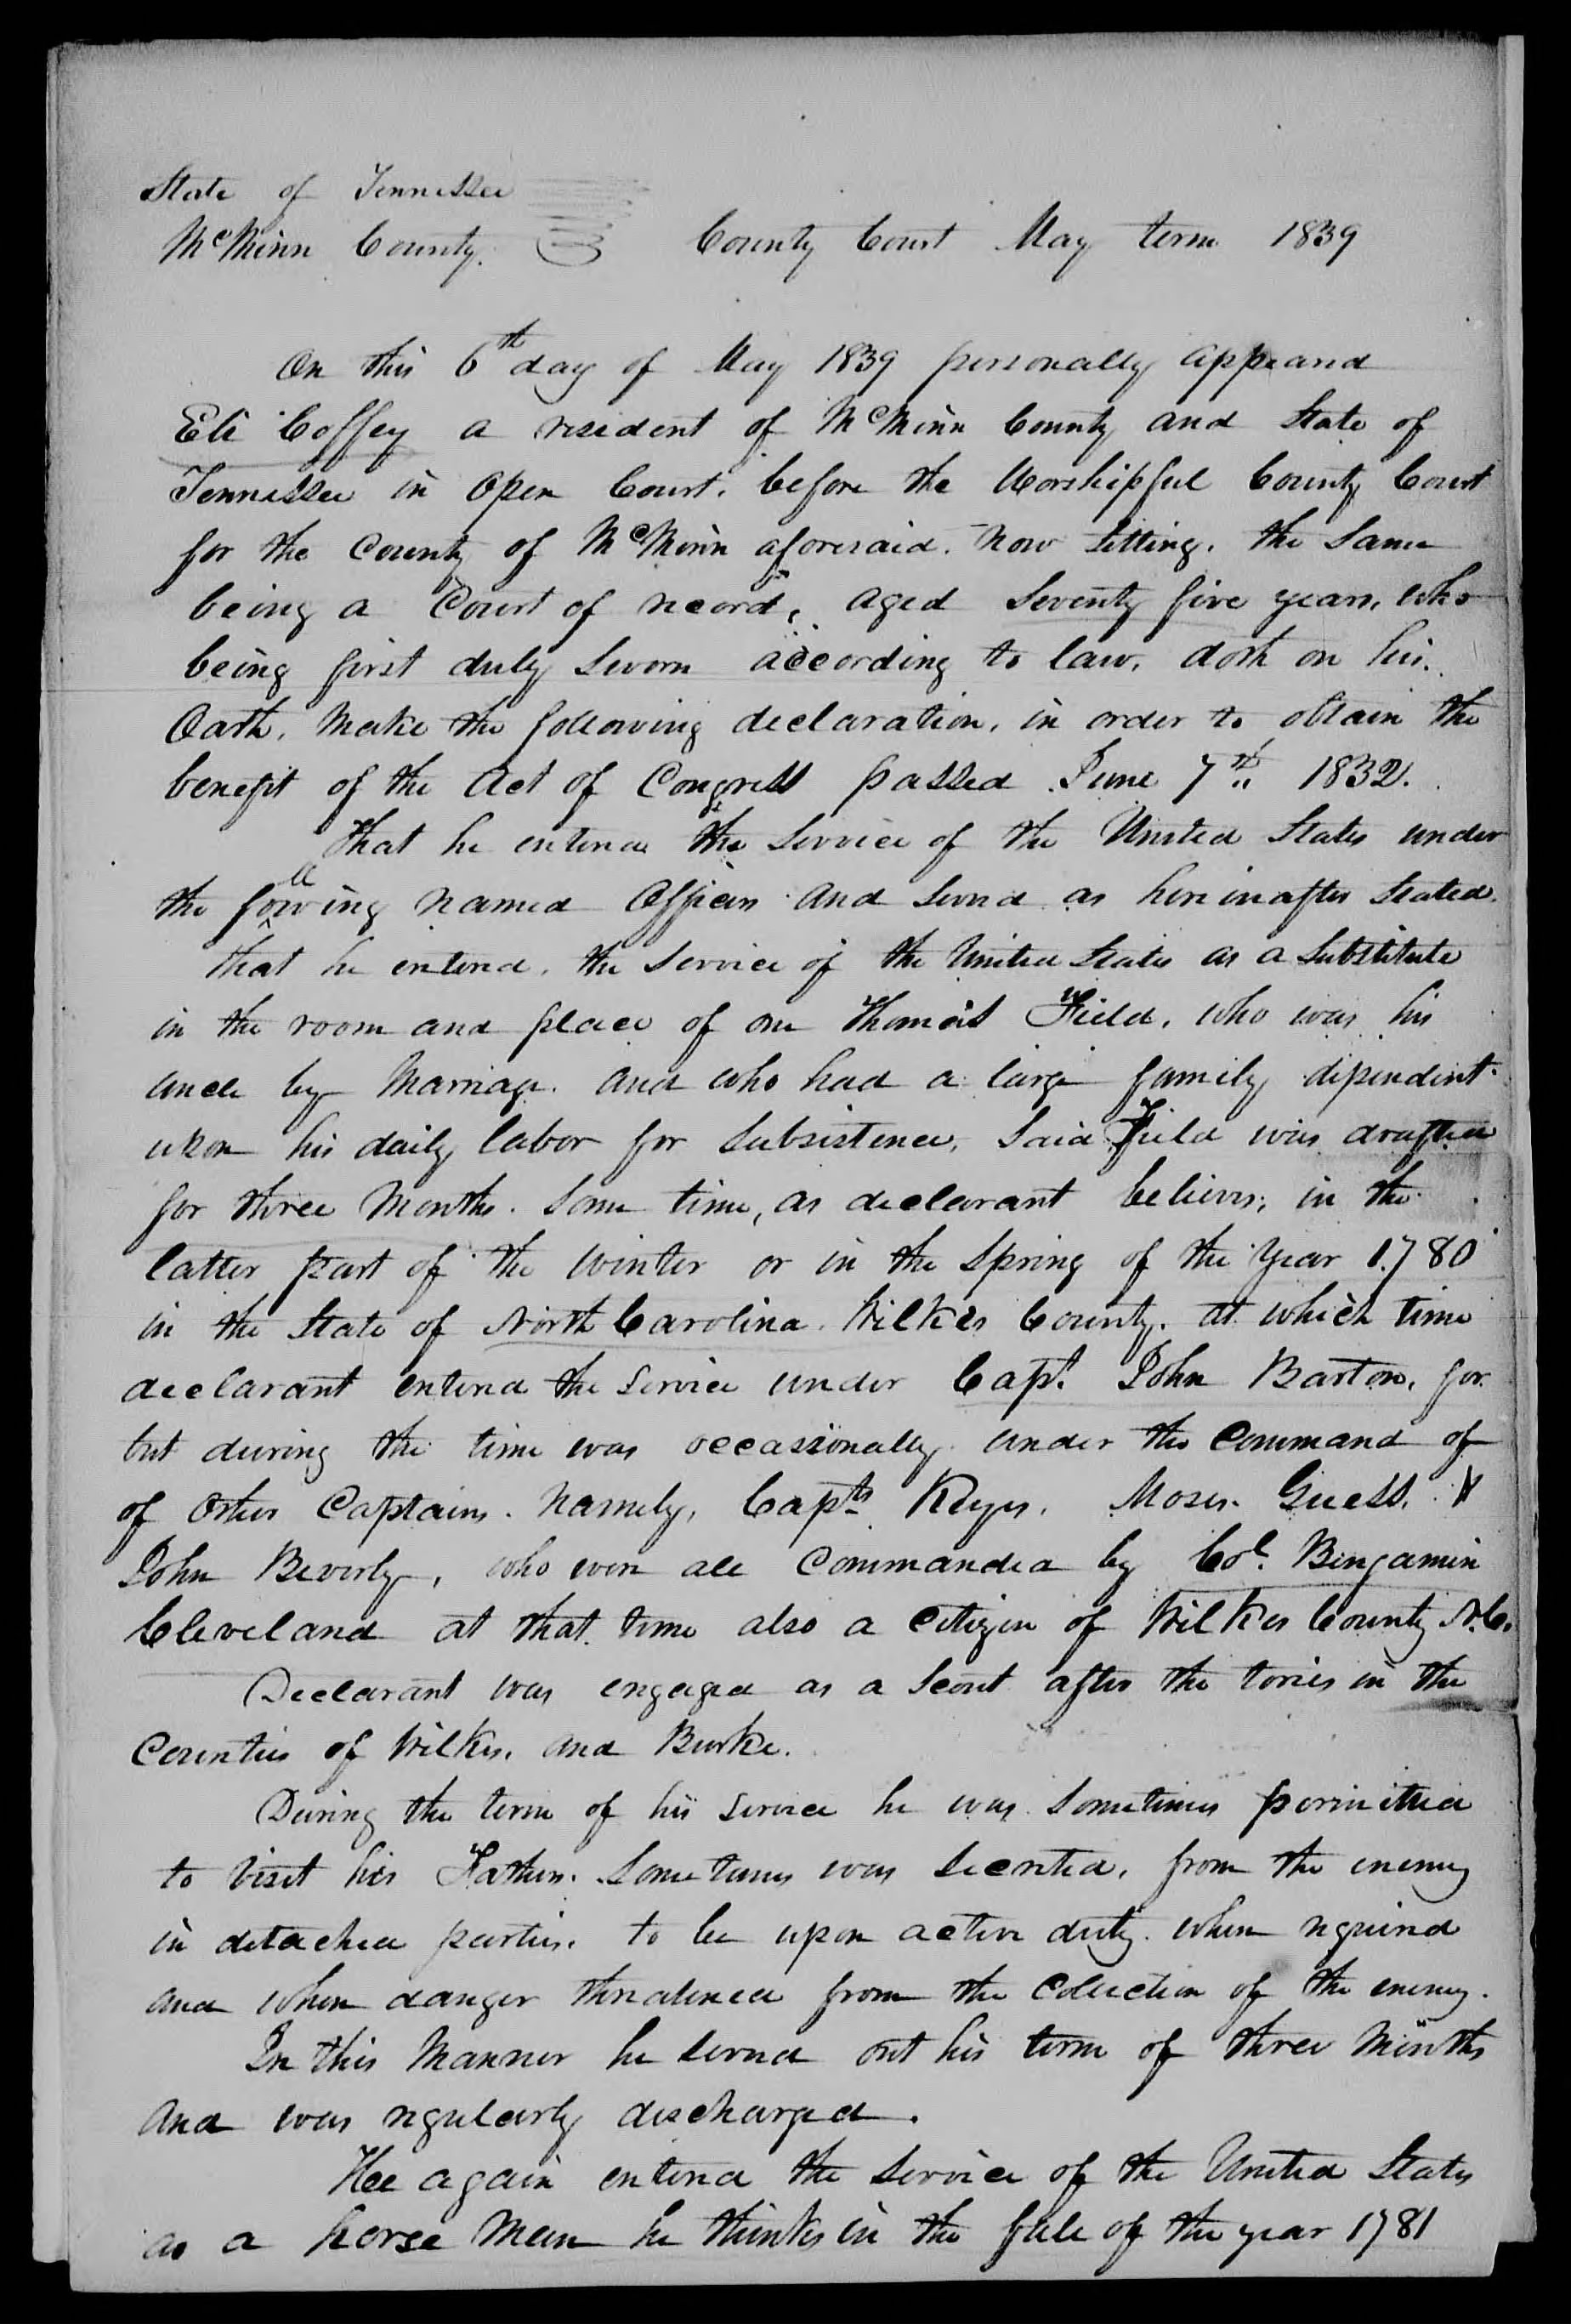 State of Tennessee
McMinn County. County Court May term 1839
On this 6th day of May 1839 personally appeared
Eli Coffey a resident of McMinn County and State of
Tennessee in open Court, before the Worshipful County Court
for the County of McMinn aforesaid. now sitting. the same
being a Court of record, aged seventy five years, who
being first duly sworn according to law, doth on his
Oath, make the following declaration, in order to obtain the
benefit of the Act of Congress passed June 7th 1832.
That he entered the service of the United States under
the following named Officers and served as hereinafter stated.
that he entered, the service of the United States as a substitute
in the room and place of one Thomas Field, who was his
uncle by marriage. and who had a large family dependent
upon his daily labor for subsistence, Said Field was drafted
for three months. some time, as declarant believes, in the
latter part of the winter or in the spring of the year 1780
in the State of North Carolina. Wilkes County. at which time
declarant entered the service under Capt. John Barton, for
but during the time was occasionally under the command of
of other Captains. namely, Capts Keyes, Moses Guess, &
John Beverly, who were all commanded by Col. Bengamin
Cleveland at that time also a citizen of Wilkes County N.C.
Declarant was engaged as a scout after the tories in the
Counties of Wilkes, and Burke.
During the term of his service he was sometimes permitted
to visit his Fathers. sometimes was secreted, from the enemy
in detached parties. to be upon active duty. when required
and when danger threatened from the collection of the enemy.
In this manner he served out his term of three months
and was regularly discharged.
Hee again entered the service of the United States
as a horse man he thinks in the fall of the year 1781